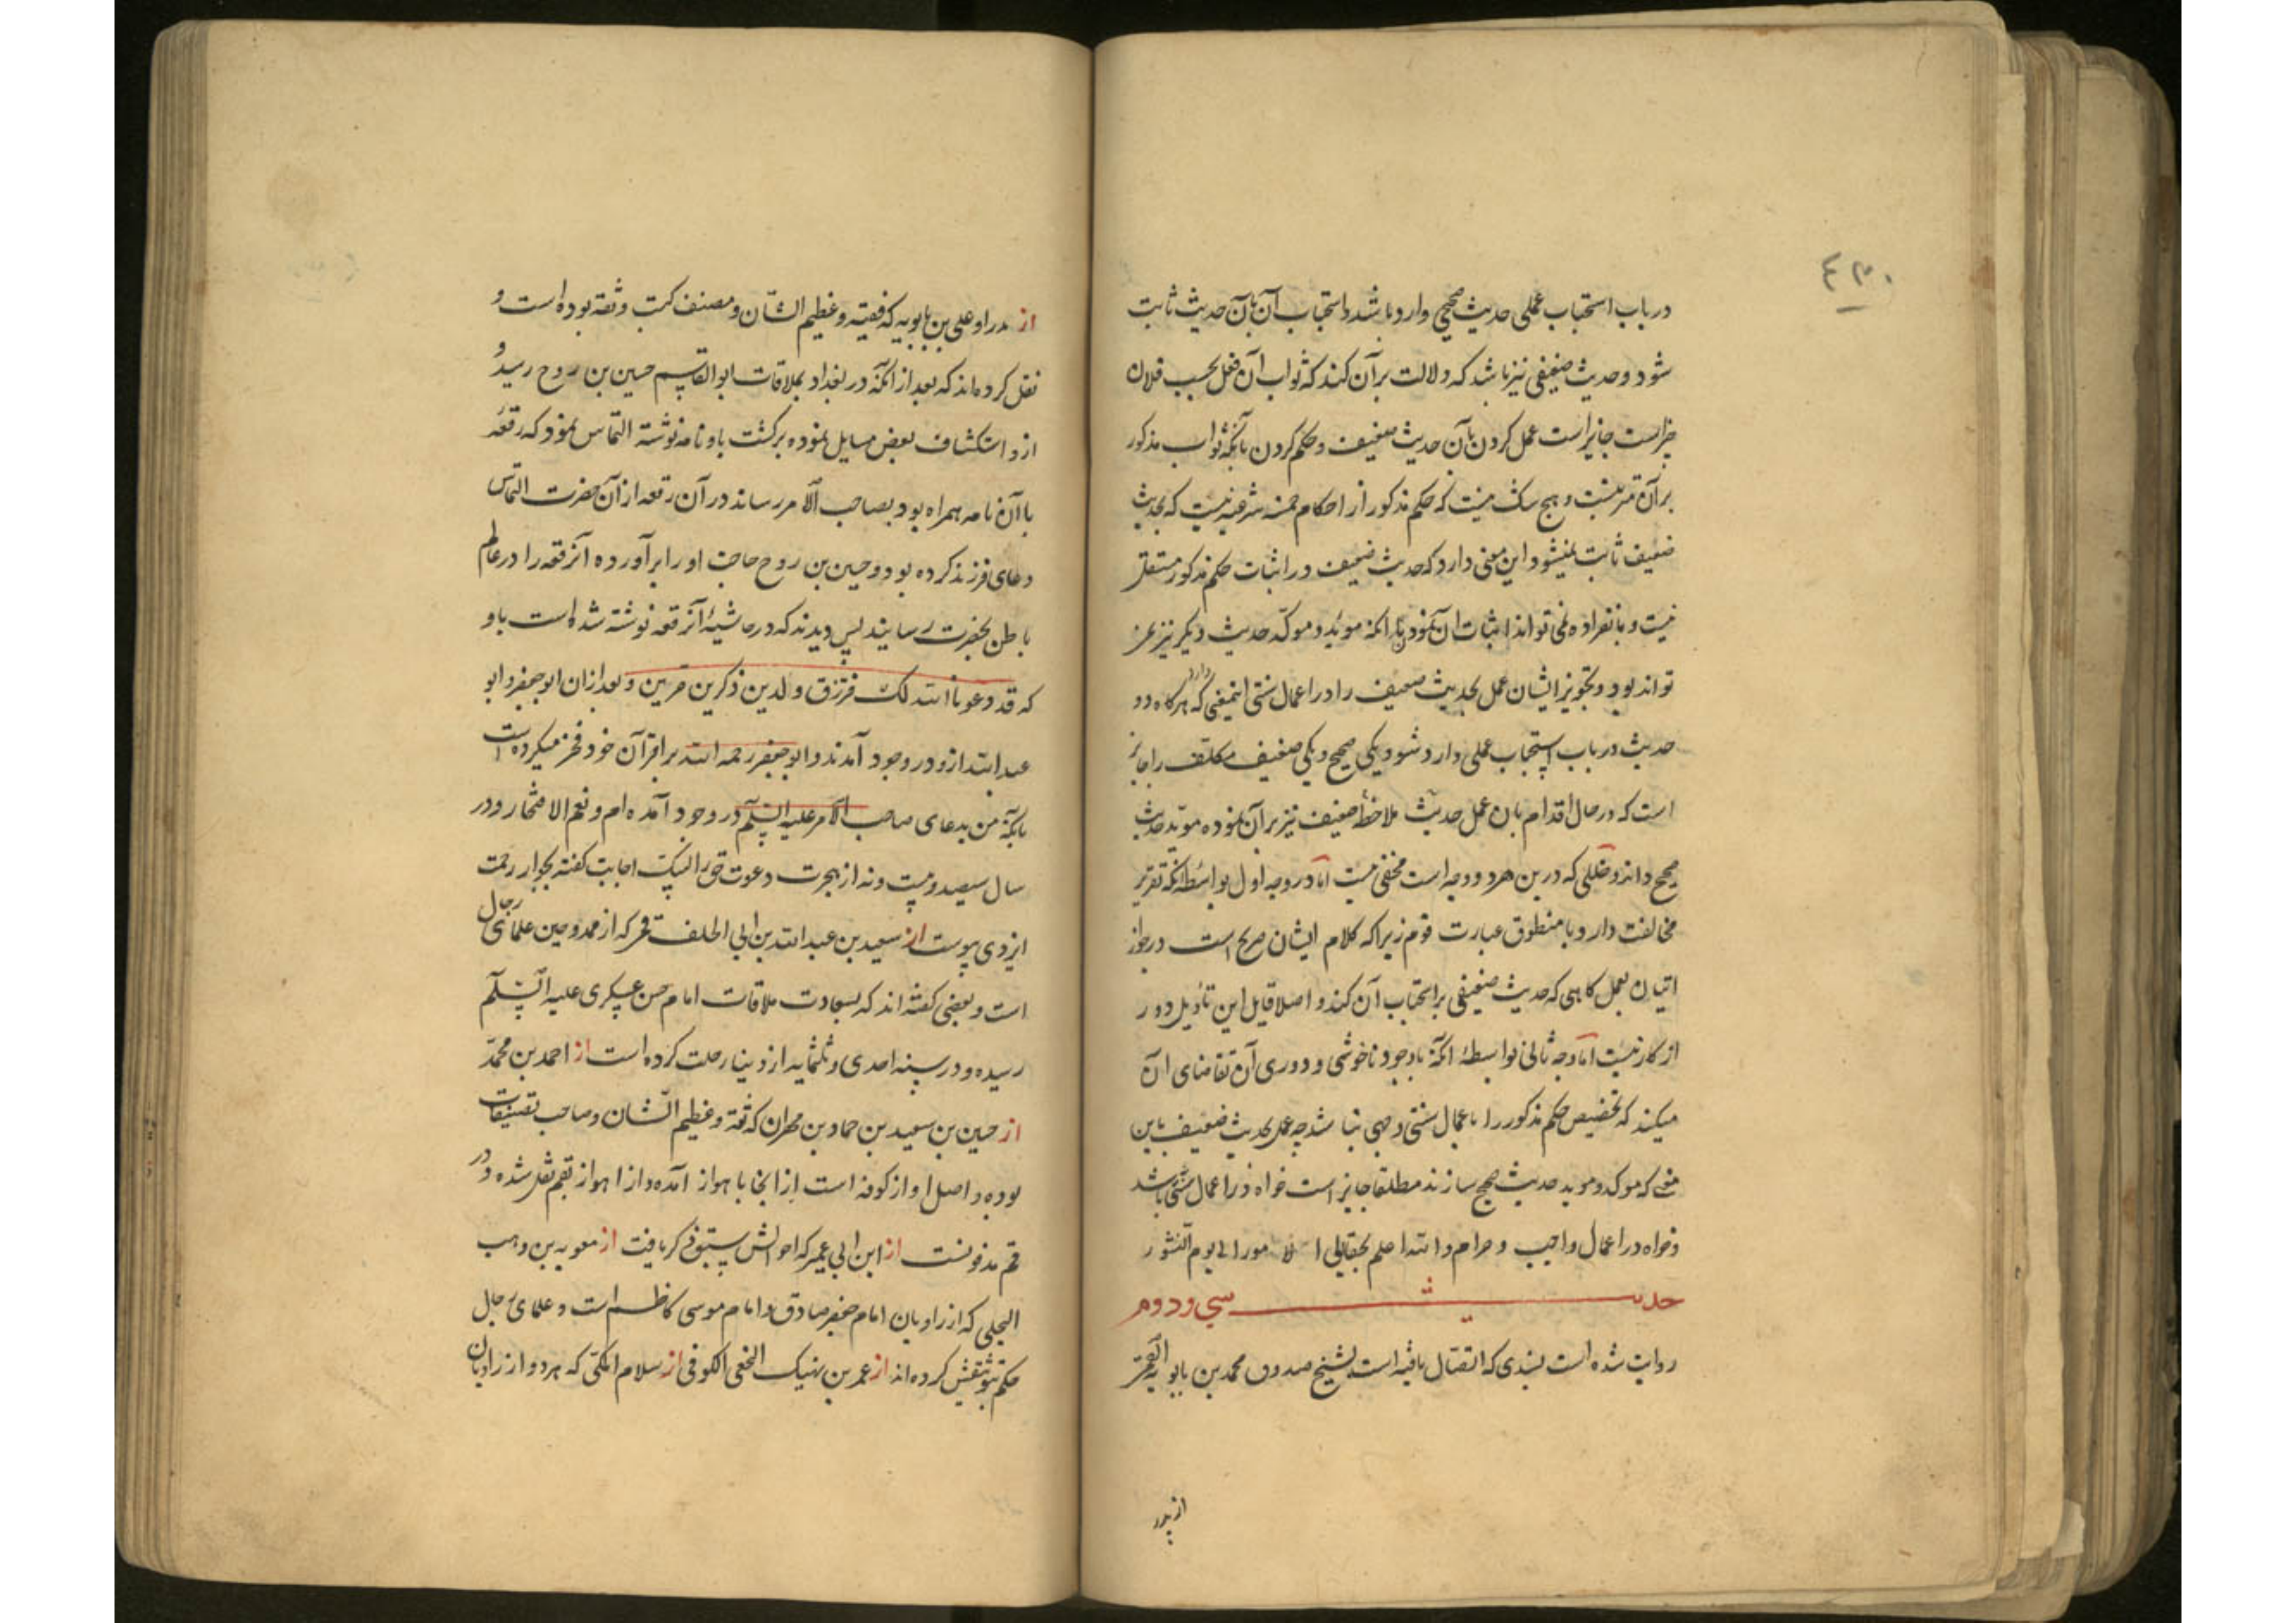 ۴۳۰
در باب استحباب عملی حدیث صحیحی وارد باشد و استحباب آن بآن حدیث ثابت
شود و حدیث ضعیفی نیز باشد که دلالت برآن کند که ثواب آن فعل بحسب فلان
چیز است جایز است عمل کردن بآن حدیث ضعیف و حکم کردن بآنکه ثواب مذکور
برآن مترتبست و هیچ شک نیست که حکم مذکور از احکام خمسه شرعیه نیست که بحدیث
ضعیف ثابت نمیشود و این معنی دارد که حدیث ضعیف در اثبات حکم مذکور مستقل
نیست و بانفراده نمی تواند اثبات آن نمود با آنکه موید و موکد حدیث دیگر نیز
تواند بود و تجویز ایشان عمل بحدیث ضعیف را در اعمال سنتی اینمعنی دارد که هرگاه دو
حدیث در باب استحباب عملی وارد شود یکی صحیح و یکی ضعیف مکلف را جایز
است که در حال اقدام بان عمل حدیث ملاحظه ضعیف نیز برآن نموده موید حدیث
صحیح داند و خللی که درین هردو وجه است مخفی نیست اما در وجه اول بواسطه آنکه تقریر
مخالفت دارد با منطوق عبارت قوم زیرا که کلام ایشان صریح است در جواز
اتیان بعمل گاهی که حدیث ضعیفی بر استحباب آن کند و اصلا قایل این تأویل دور
از کار نیست اما وجه ثانی بواسطه آنکه باوجود ناخوشی و دوری آن تقاضای آن
میکند که تخصیص حکم مذکور را باعمال سنتی وجهی نباشد چه عمل بحدیث ضعیف باین
معنی که موکد و موید حدیث صحیح سازند مطلقا جایز است خواه در اعمال سنتی باشد
و خواه در اعمال واجب و حرام والله اعلم بحقایق الامور الی یوم النشور
حدیث سی و دوم
روایت شده است بسندی که اتصال یافته است بشیخ صدوق محمد بن بابویه القمی
از پدر
از پدر او علی بن بابویه که فقیه و عظیم الشان و مصنف کتب و ثقه بوده است و
نقل کرده اند که بعد از آنکه در بغداد بملاقات ابوالقاسم حسین بن روح رسید و
ازو استکشاف بعض مسایل نموده برگشت باو نامه نوشته التماس نمود که رقعه
با آن نامه همراه بود بصاحب الامر رساند در آن رقعه از آن حضرت التماس
دعای فرزند کرده بود و حسین بن روح حاجت او را برآورده آنرقعه را در عالم
باطن بحضرت رسانیدند پس دیدند که در حاشیه آنرقعه نوشته شده است باو
که قد دعونا الله لک فترزق ولدین ذکرین خیرین و بعد از ان ابوجعفر و ابو
عبدالله ازو در وجود آمدند و ابوجعفر رحمه الله بر اقران خود فخر میکرده است
بآنکه من بدعای صاحب الامر علیه السلام در وجود آمده ام و نعم الافتخار و در
سال سیصد و بیست و نه از هجرت دعوت حق را لبیک اجابت گفته بجوار رحمت
ایزدی پیوست از سعید بن عبدالله بن ابی الخلف قمی که از ممدوحین علمای رجال
است و بعضی گفته اند که بسعادت ملاقات امام حسن عسکری علیه السلام
رسیده و در سنه احدی و ثلثمایه از دنیا رحلت کرده است از احمد بن محمد
از حسین بن سعید بن حماد بن مهران که ثقه و عظیم الشان و صاحب تصنیفات
بوده و اصل او از کوفه است از انجا باهواز آمده و از اهواز بقم نقل شده و در
قم مدفونست از ابن ابی عمیر که احوالش سبق ذکر یافت از معویه بن وهب
البجلی که از راویان امام جعفر صادق و امام موسی کاظم است و علمای رجال
حکم بتوثیقش کرده اند از عمر بن نهیک النخعی الکوفی از سلام المکی که هر دو از راویان